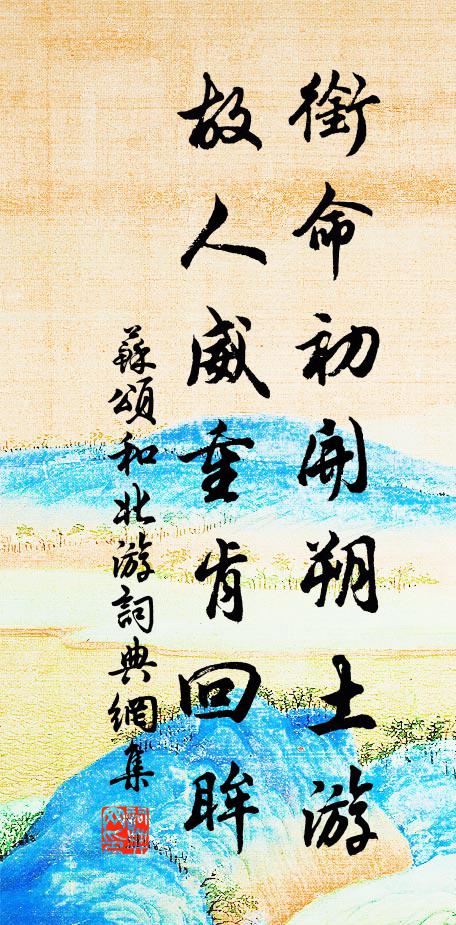 銜命初開朔土游
故人威重肯回眸
蘇頌和北游詞典網集